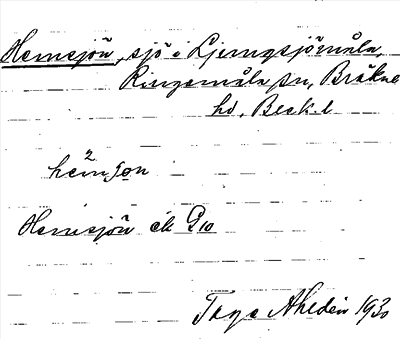 Hemsjön, sjö i Ljungsjömåla,
Ringamåla sn, Bräkne
hd, Blek. l
2
hämʃön
Hemsjön ek G 10
Tage Ahldén 1930